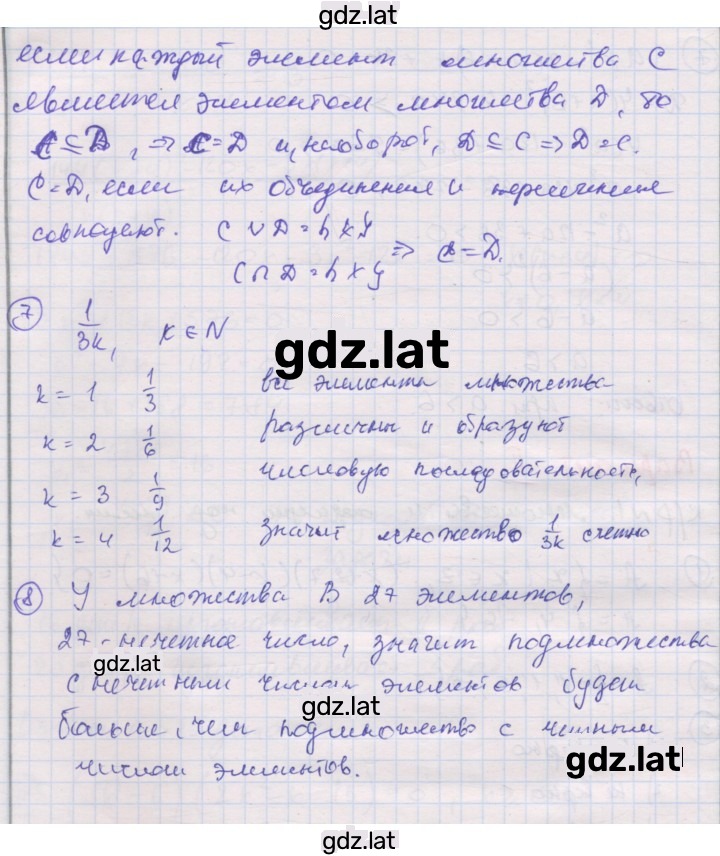 gdz.lat
если каждый элемент множества C
является элементом множества D, то
C ⊆ D, ⇒ C = D и, наоборот, D ⊆ C ⇒ D = C.
C = D, если их объединение и пересечение
совпадают. C ∪ D = h x y
C ∩ D = h x y ⇒ C = D.
7 1/3k, k ∈ N
gdz.lat
k = 1 1/3 все элементы множества
k = 2 1/6 различны и образуют
k = 3 1/9 числовую последовательность,
k = 4 1/12 значит множество 1/3k счетно
8 У множества B 27 элементов,
27 - нечетное число, значит подмножества
gdz.lat
с нечетными числом элементов будет
gdz.lat
больше, чем подмножество с четным
числом элементов.
gdz.lat
gdz.lat